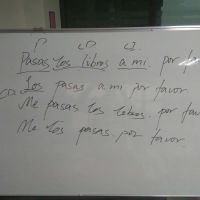 P CD CI.
Pasas los libros a mi. por f
CD. Los pasas a mi por favor.
Me pasas los libros. por f
Me los pasas. por favor.